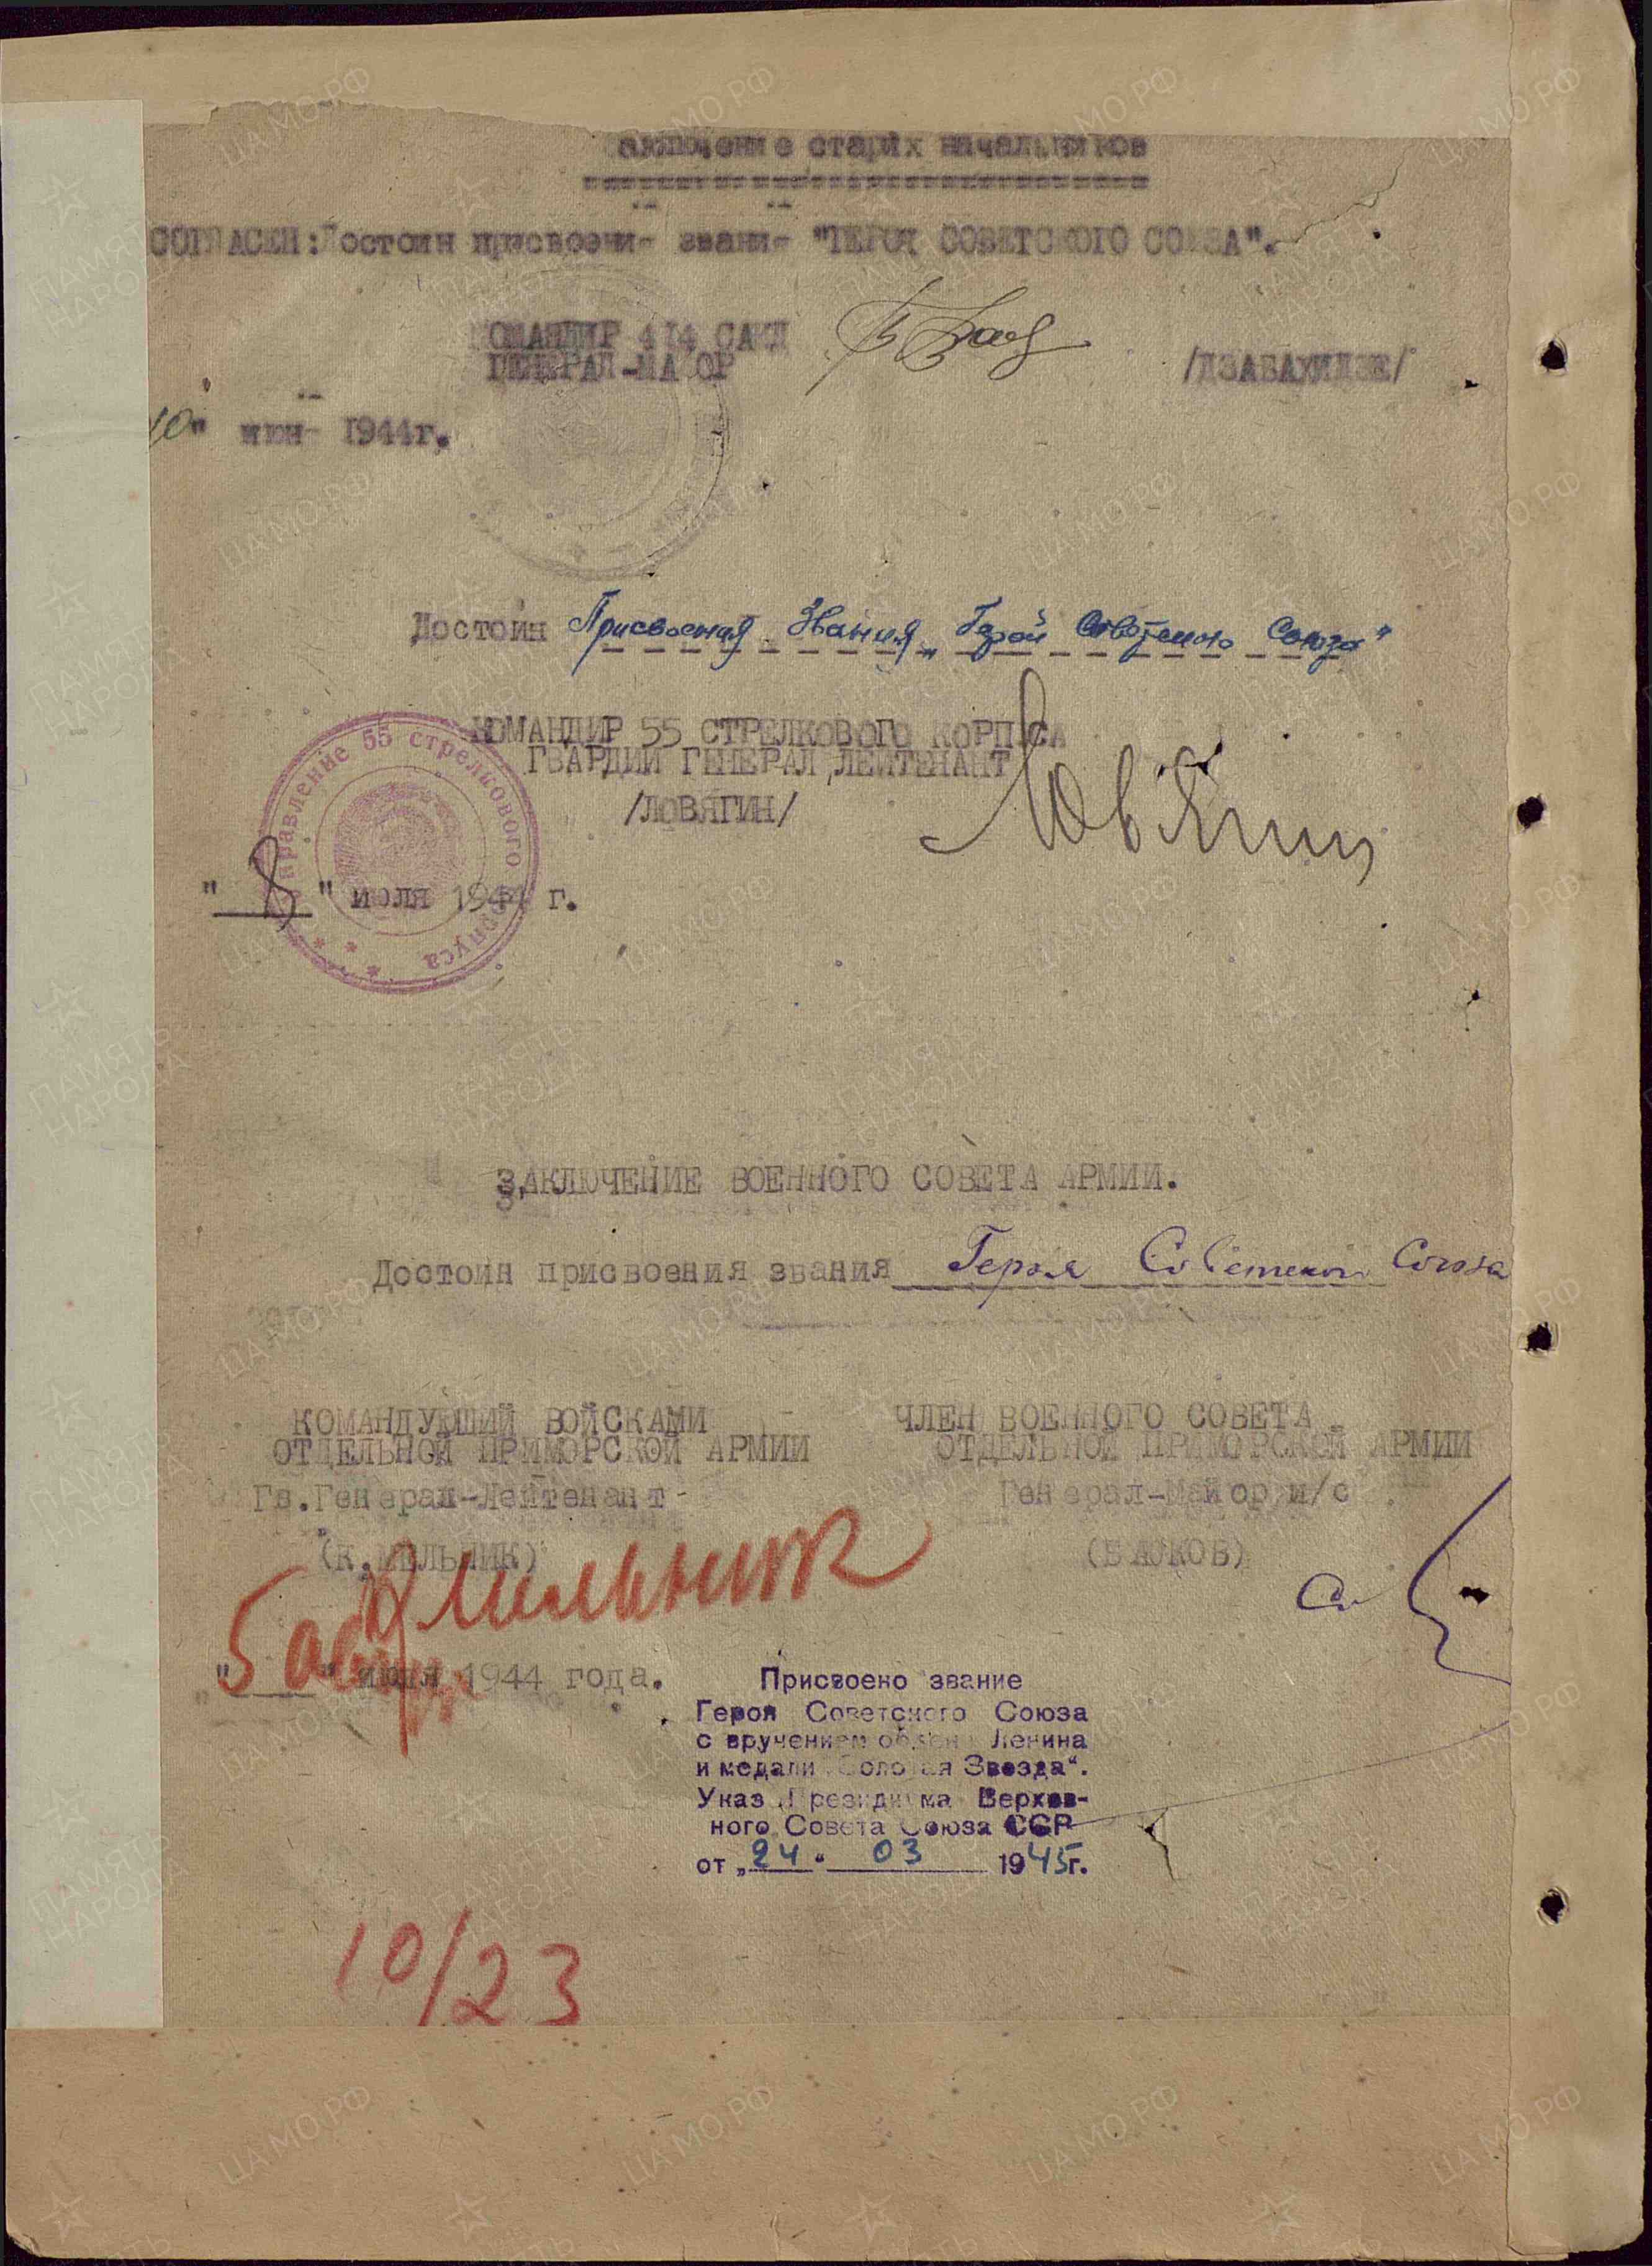 аключение старих начальников
СОГЛАСЕН: Достоин присвоени- звани- "ГЕРОЯ СОВЕТСКОГО СОЮЗА".
КОМАНДИР 414 САКД
ГЕНЕРАЛ-МАЙОР
/ДЗАБАХИДЗЕ/
10" июн- 1944г.
Достоин Присвоения Звания „Герой Советского Союза"
КОМАНДИР 55 СТРЕЛКОВОГО КОРПУСА
ГВАРДИИ ГЕНЕРАЛ ЛЕЙТЕНАНТ
/ЛОВЯГИН/
Ловягин
управление 55 стрелкового корпуса
"8" июля 1944 г.
ЗАКЛЮЧЕНИЕ ВОЕННОГО СОВЕТА АРМИИ.
Достоин присвоения звания Героя Советского Союза
КОМАНДУЮЩИЙ ВОЙСКАМИ
ОТДЕЛЬНОЙ ПРИМОРСКОЙ АРМИИ
Гв.Генерал-Лейтенант
(К.МЕЛЬНИК)
Мельник
ЧЛЕН ВОЕННОГО СОВЕТА
ОТДЕЛЬНОЙ ПРИМОРСКОЙ АРМИИ
Генерал-Майор и/с
(БАЮКОВ)
"5" июля 1944 года.
Присвоено звание
Героя Советского Союза
с вручением ордена Ленина
и медали „Золотая Звезда".
Указ Президиума Верхов-
ного Совета Союза ССР
от „24" 03 1945г.
10/23
ЦА МО РФ
ПАМЯТЬ НАРОДА